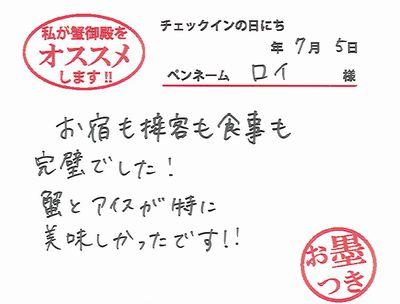 私が蟹御殿を
オススメ
します!!
チェックインの日にち
年 7月 5日
ペンネーム ロイ 様
お宿も接客も食事も
完璧でした!
蟹とアイスが特に
美味しかったです!!
お墨
つき